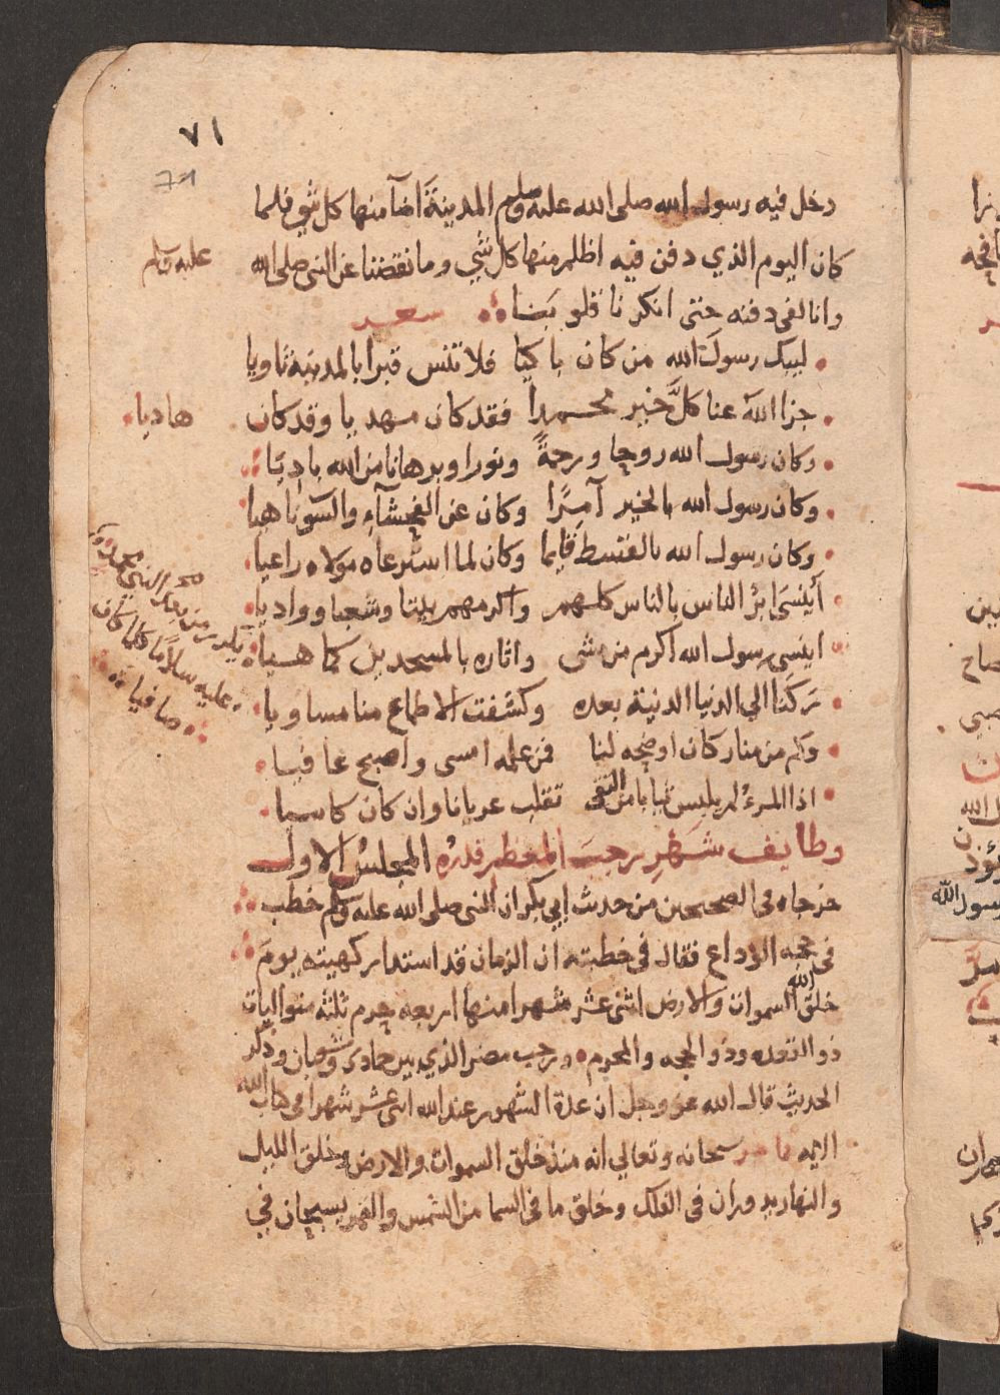 ٧١
71
دخل فيه رسول الله صلى الله عليه وسلم المدينة اضآ منها كل شي فلما
كان اليوم الذي دفن فيه اظلم منها كل شي وما نفضنا عن النبي صلى الله عليه وسلم
وانا لفي دفنه حتى انكرنا قلوبنا شعر
لبيك رسول الله من كان باكيا فلا تنس قبرا بالمدينة ثاويا
جزا الله عنا كل خير محمدا فقد كان مهديا وقد كان هاديا
وكان رسول الله روحا ورحمة ونورا وبرهانا من الله باديا
وكان رسول الله بالخير آمرا وكان عن الفحشآء والسو ناهيا
وكان رسول الله بالقسط قايما وكان لما استرعاه مولاه راعيا
أينسى ابر الناس بالناس كلهم واكرمهم بيتا وشعبا وواديا
اينسى رسول الله اكرم من مشى واثاره بالمسجدين كما هيا
تكدر من بعد النبي محمد
عليه سلام كلما كان
صافيا
تركنا الي الدنيا الدنية بعده وكشفت الاطماع منا مساويا
وكم من منار كان اوضحه لنا فمن علمه امسى واصبح عافيا
اذا المرء لم يلبس ثيابا من التقى تقلب عريانا وان كان كاسيا
وظايف شهر رجب المعظم قدره المجلس الاول
خرجاه في الصحيحين من حديث ابي بكر ان النبي صلى الله عليه وسلم خطب
في حجه الوداع فقال في خطبته ان الزمان قد استدار كهيئته يوم
خلق الله السموات والارض اثنى عشر شهرا منها اربعه حرم ثلثه متواليات
ذو القعده وذو الحجه والمحرم ورجب مضر الذي بين جمادى وشعبان وذكر
الحديث قال الله عز وجل ان عدة الشهور عند الله اثنى عشر شهرا في كتاب الله
الايه سبحانه وتعالي انه منذ خلق السموات والارض وخلق الليل
والنهار يدوران في الفلك وخلق ما في السما من الشمس والقمر يسبحان في